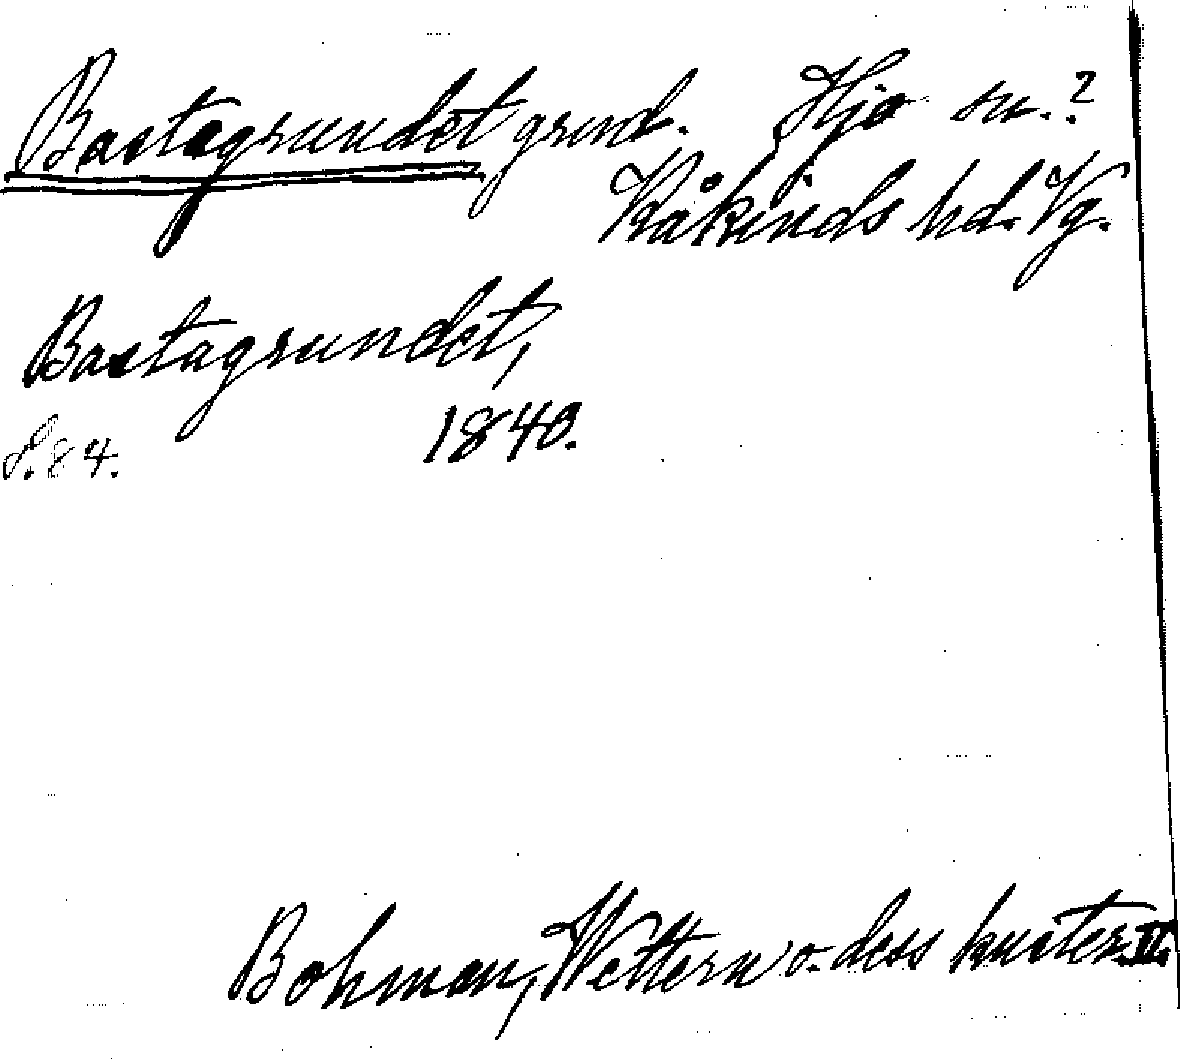 Bastagrundet grund. Hjo sn.?
Kåkinds hd. Vg.
Bastagrundet,
S. 84. 1840.
Bohman, Wettern o. dess kuster. II.